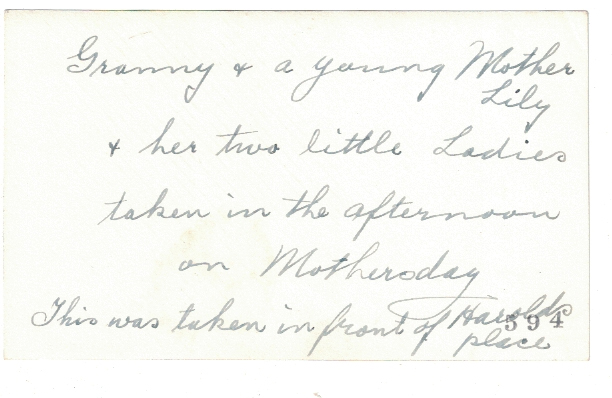 Granny & a young Mother
Lily
& her two little Ladies
taken in the afternoon
on Mothersday
This was taken in front of Harolds
place
594